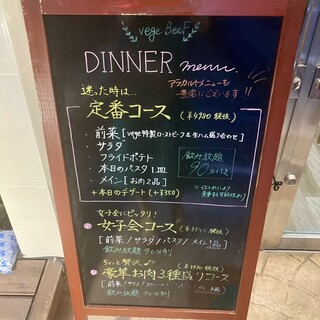 vege Beef
DINNER menu.
アラカルトメニューも
豊富にございます!!
迷った時は…
定番コース (¥4980 税抜)
・前菜[vege特製ローストビーフ&生ハム盛り合わせ]
・サラダ
・フライドポテト
・本日のパスタ1皿
・メイン[お肉2品]
+本日のデザート(+¥350)
飲み放題
90分付き
女子会にピッタリ!
女子会コース
税抜)
[前菜/サラダ/パスタ/メイン1品]
飲み放題 90分制
ちょっと贅沢
豪華お肉3種盛りコース
税抜)
[前菜/サラダ/
飲み放題 90分制